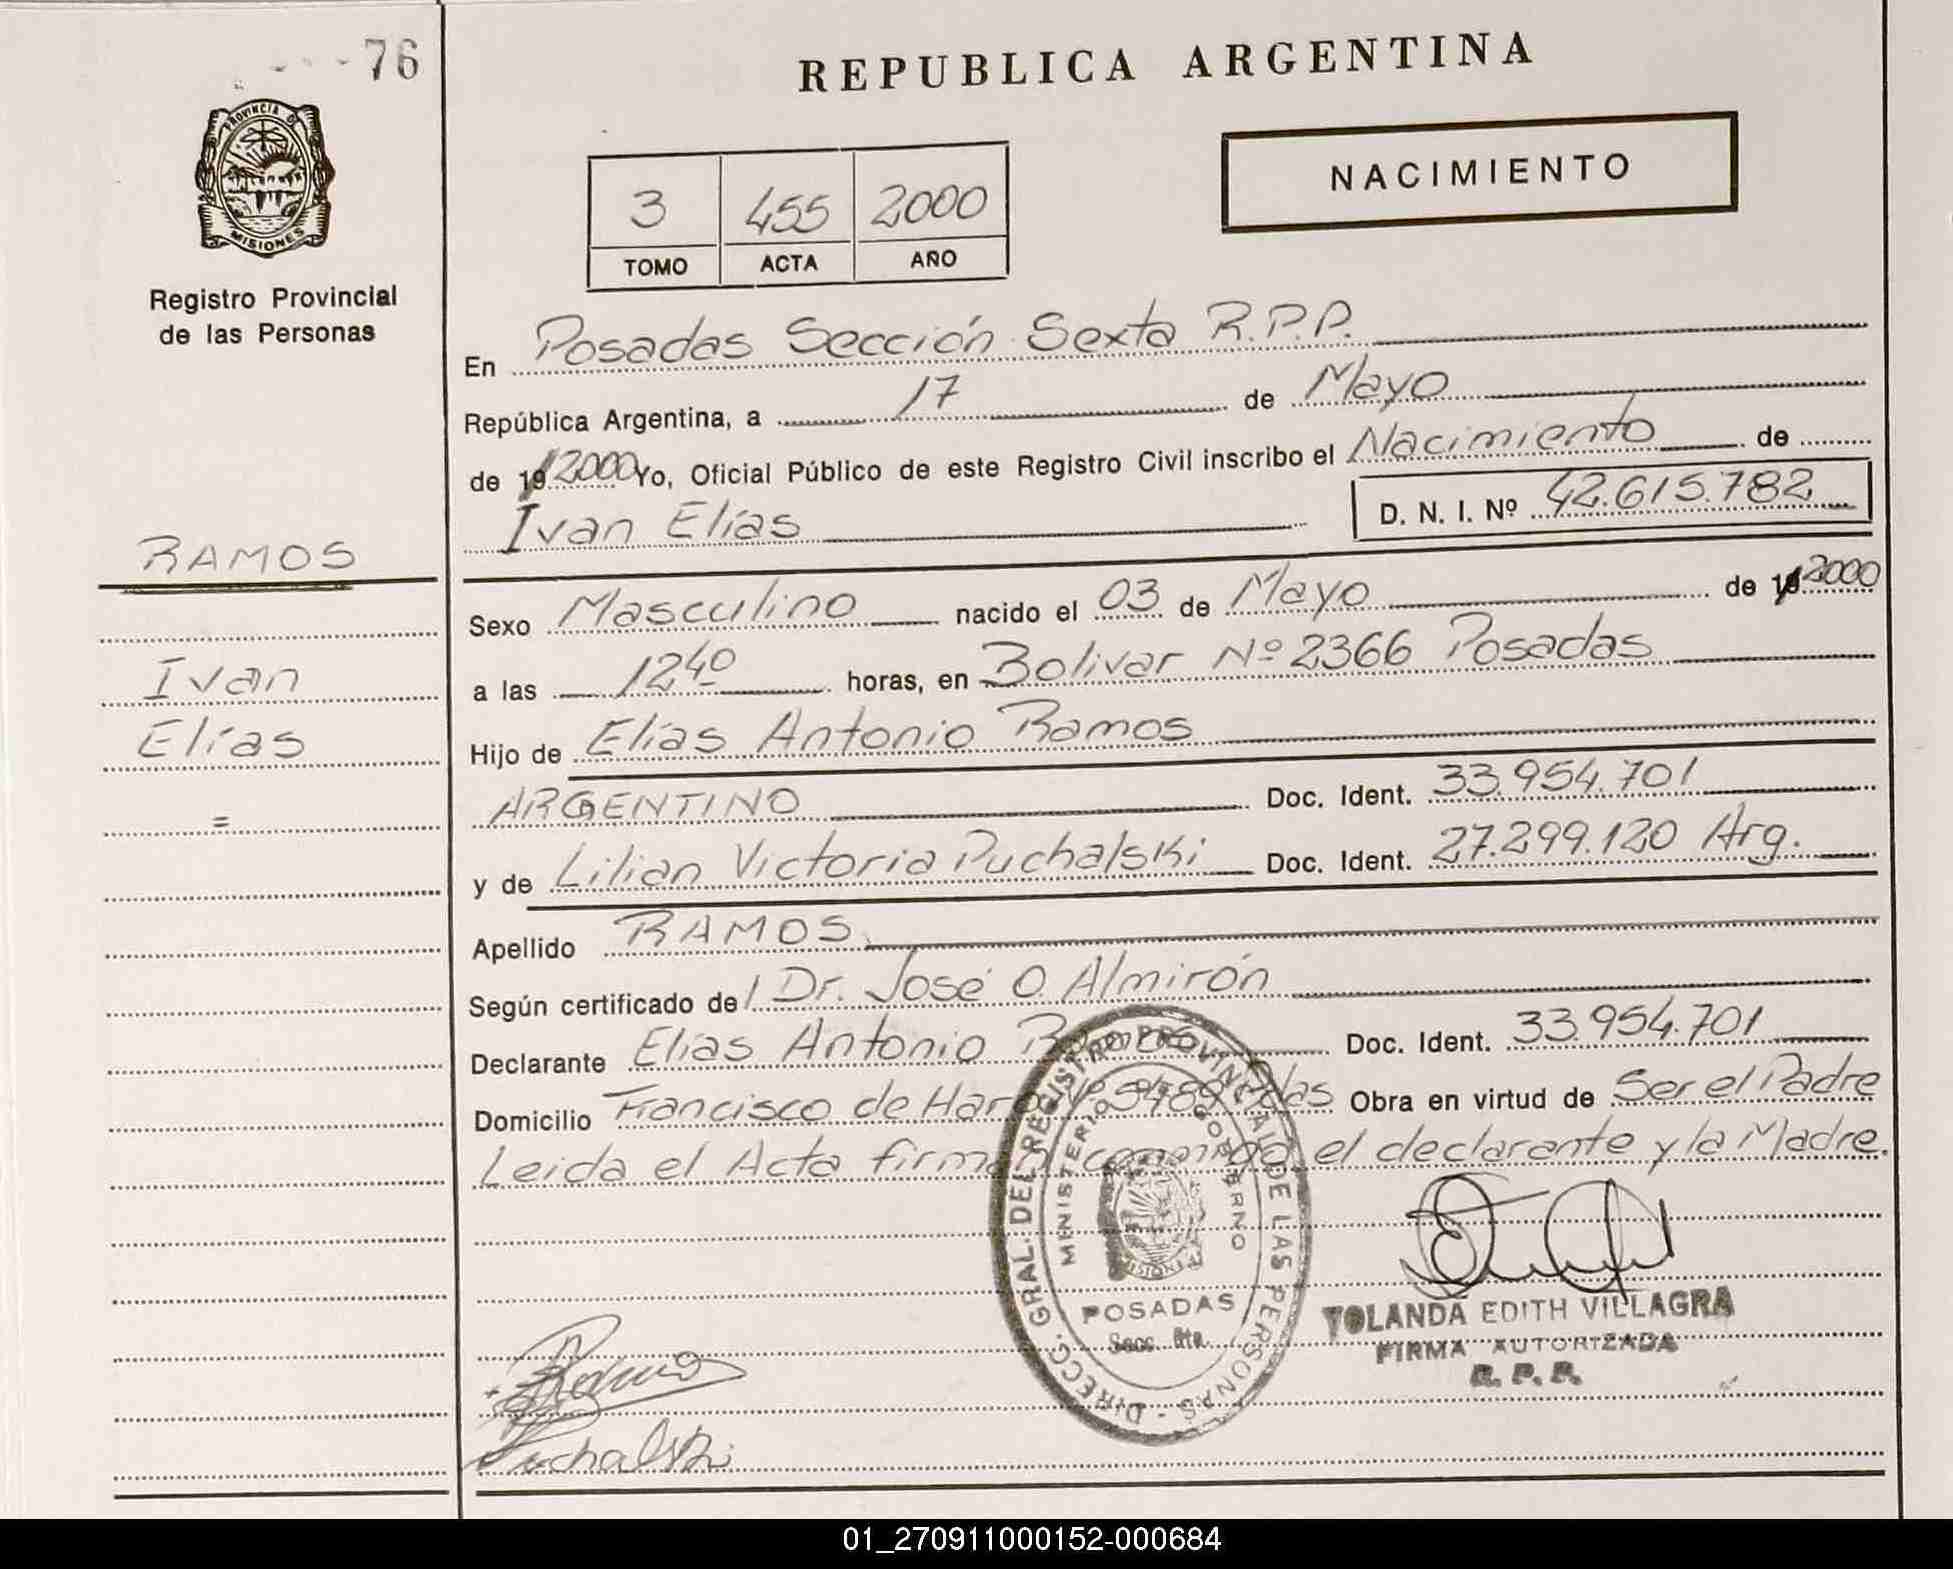 76
REPUBLICA ARGENTINA
PROVINCIA DE
MISIONES
Registro Provincial
de las Personas
NACIMIENTO
3 455 2000
TOMO ACTA AÑO
En Posadas Sección Sexta R.P.P.
República Argentina, a 17 de Mayo
de 19 2000 Yo, Oficial Público de este Registro Civil inscribo el Nacimiento de
Ivan Elías D. N. I. Nº 42.615.782
RAMOS
Ivan
Elías
=
Sexo Masculino nacido el 03 de Mayo de 19 2000
a las 12 40 horas, en Bolivar Nº 2366 Posadas
Hijo de Elías Antonio Ramos
ARGENTINO Doc. Ident. 33.954.701
y de Lilian Victoria Puchalski Doc. Ident. 27.299.120 Arg.
Apellido RAMOS
Según certificado de Dr. José O. Almirón
Declarante Elías Antonio Ramos Doc. Ident. 33.954.701
Domicilio Francisco de Haro Nº 5489 Pdas Obra en virtud de Ser el Padre
Leida el Acta firman conmigo el declarante y la Madre.
DIRECC. GRAL. DEL REGISTRO PROVINCIAL DE LAS PERSONAS -
MINISTERIO DE GOBIERNO
MISIONES
POSADAS
Secc. 6ta.
YOLANDA EDITH VILLAGRA
FIRMA AUTORIZADA
R. P. P.
Ramos
Puchalski
01_270911000152-000684